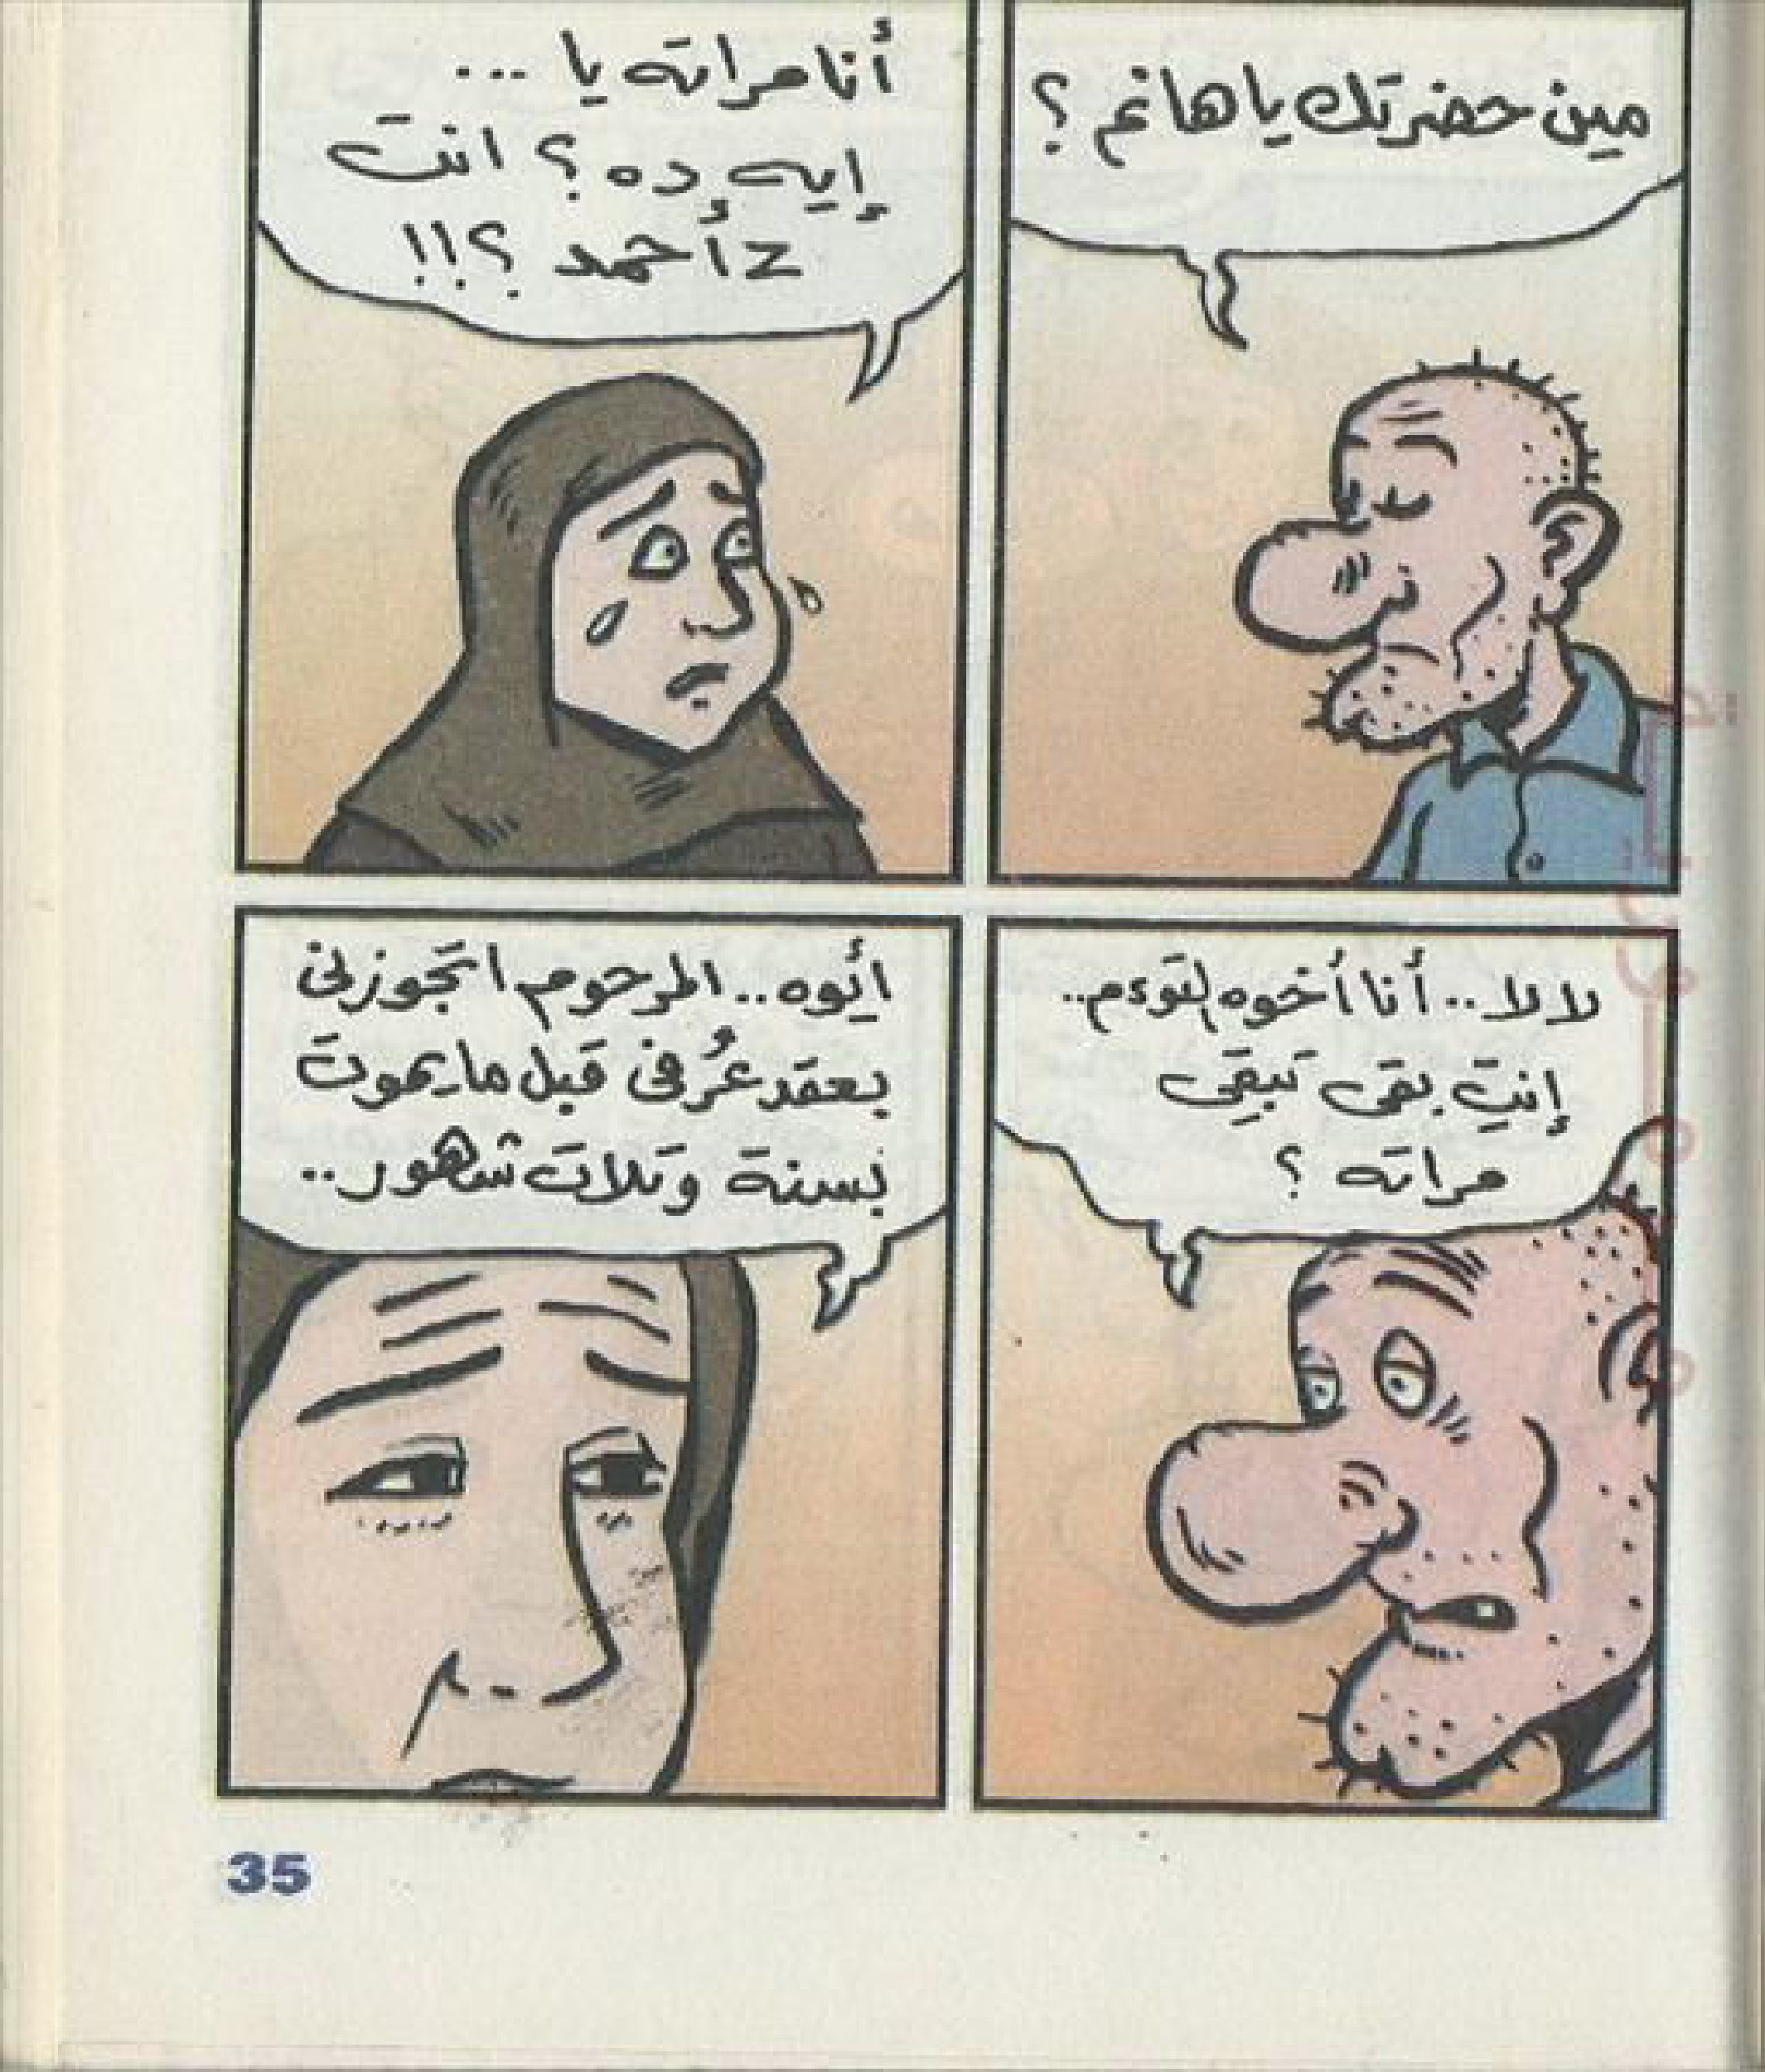 مين حضرتك يا هانم ؟
أنا مراته يا ...
إيه ده ؟ انت
أحمد ؟!!
لا لا .. أنا أخوه التوءم ..
إنتِ بقى تبقي
مراته ؟
أيوه .. المرحوم اتجوزنى
بعقد عُرفى قبل ما يموت
بسنة وتلات شهور ..
35